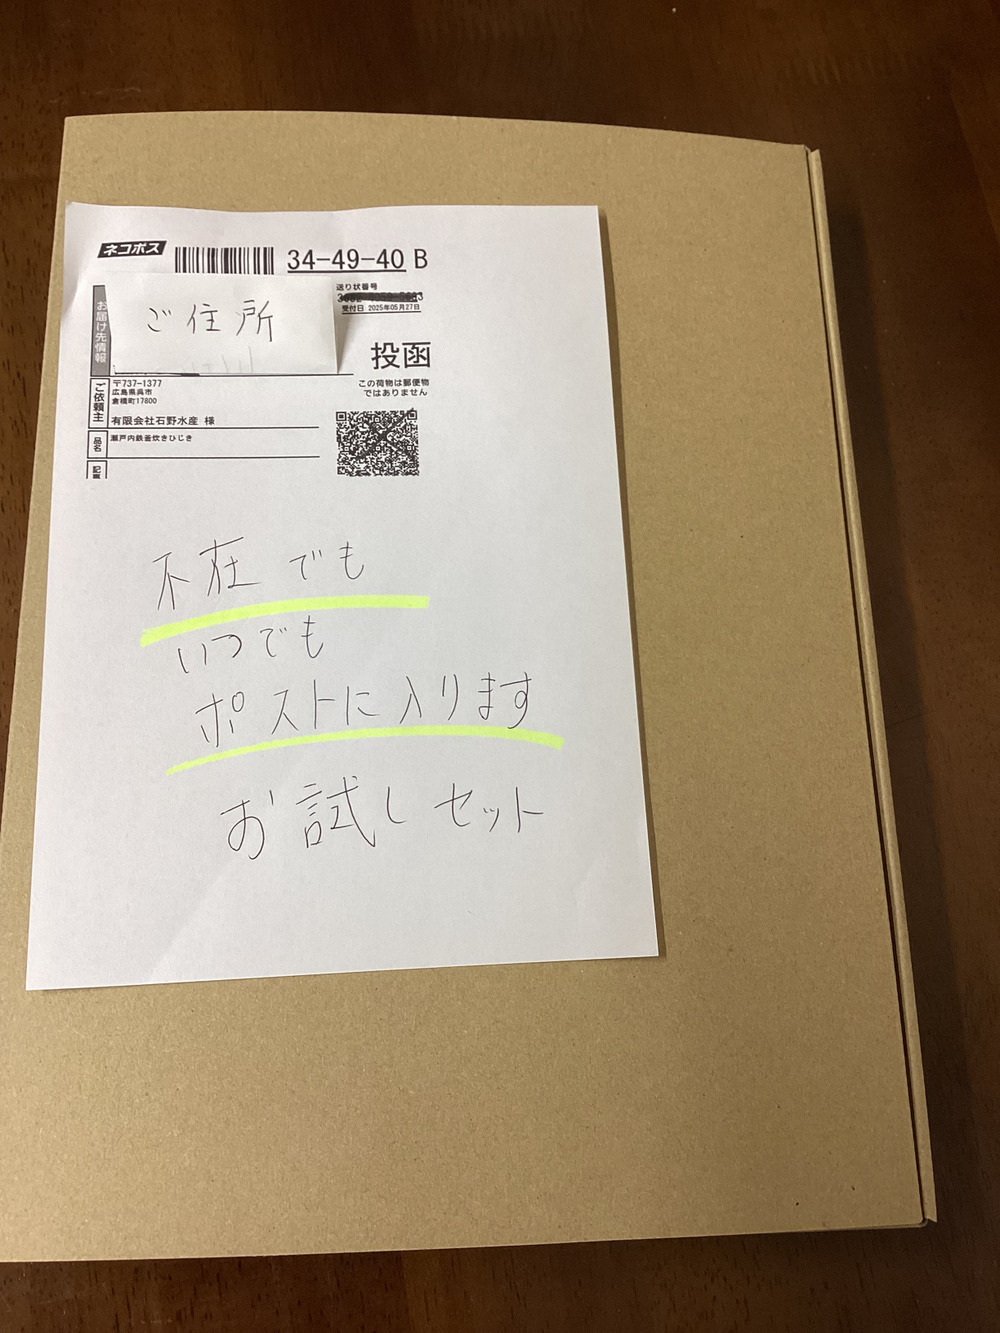 ネコポス
34-49-40 B
送り状番号
受付日 2025年05月27日
お届け先情報
ご住所
投函
この荷物は郵便物
ではありません
ご依頼主
〒737-1377
広島県呉市
倉橋町17800
有限会社石野水産 様
品名
瀬戸内鉄釜炊きひじき
不在でも
いつでも
ポストに入ります
お試しセット